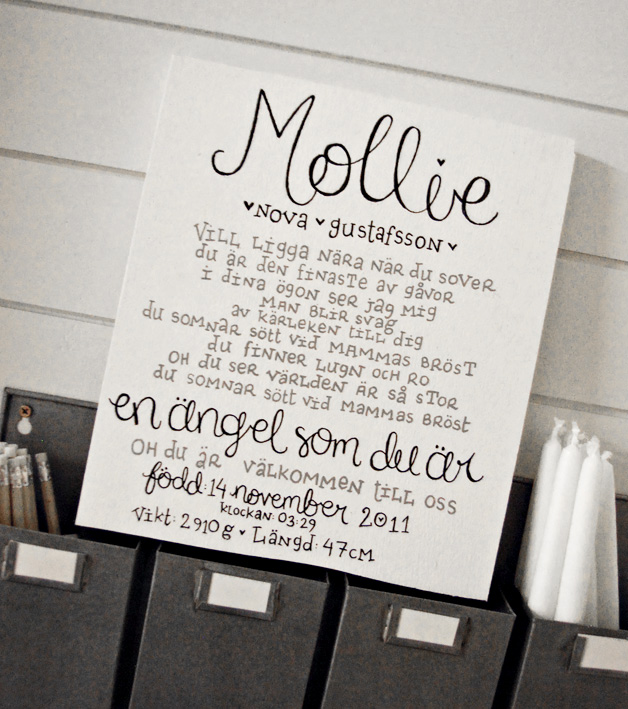 Mollie
♥Nova ♥ gustafsson ♥
Vill ligga nära när du sover
du är den finaste av gåvor
i dina ögon ser jag mig
man blir svag
av kärleken till dig
du somnar sött vid mammas bröst
du finner lugn och ro
oh du ser världen är så stor
du somnar sött vid mammas bröst
en ängel som du är
oh du är välkommen till oss
född: 14 november 2011
klockan: 03:29
Vikt: 2910 g ♥ Längd: 47cm